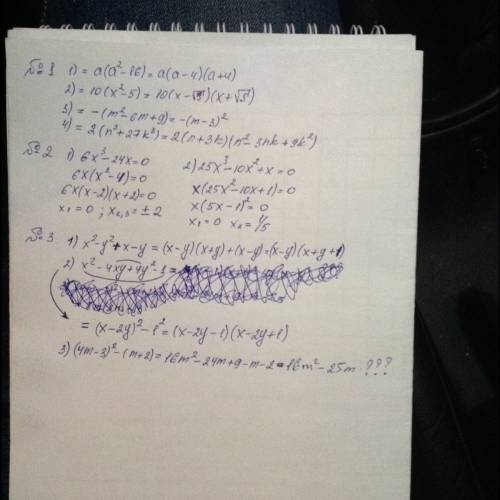 №1 1) = a(a²-16) = a(a-4)(a+4)
2) = 10(x²-5) = 10(x-√5)(x+√5)
3) = -(m²-6m+9) = -(m-3)²
4) = 2(n³+27k³) = 2(n+3k)(n²-3nk+9k²)
№2 1) 6x³-24x=0
6x(x²-4)=0
6x(x-2)(x+2)=0
x₁=0; x₂,₃=±2
2) 25x³-10x²+x=0
x(25x²-10x+1)=0
x(5x-1)²=0
x₁=0 x₂=1/5
№3 1) x²-y²+x-y = (x-y)(x+y)+(x-y)=(x-y)(x+y+1)
2) x²-4xy+4y²-1 =
= (x-2y)²-1² = (x-2y-1)(x-2y+1)
3) (4m-3)²-(m+2) = 16m²-24m+9-m-2=16m²-25m ???